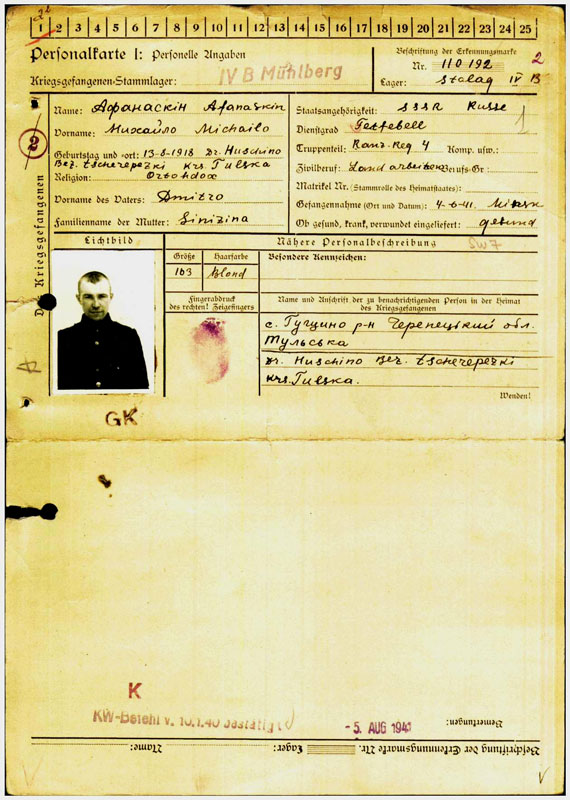 1 2 3 4 5 6 7 8 9 10 11 12 13 14 15 16 17 18 19 20 21 22 23 24 25
Personalkarte I: Personelle Angaben
Beschriftung der Erkennungsmarke
2
Nr. 110192
Kriegsgefangenen-Stammlager: IV B Mühlberg
Lager: Stalag IV B
Des Kriegsgefangenen
2
Name: Афанаскін Afanaskin
Vorname: Михайло Michailo
Geburtstag und -ort: 13-8-1918 Dr. Huschino
Bez. tscherepezki Krs. Tulska
Religion: Ortohdox
Vorname des Vaters: Dmitro
Familienname der Mutter: Sinizina
Staatsangehörigkeit: SSSR Russe
1
Dienstgrad
Truppenteil: Kanz. Reg 4 Komp. usw.:
Zivilberuf: Landarbeiter Berufs-Gr.:
Matrikel Nr. (Stammrolle des Heimatstaates):
Gefangennahme (Ort und Datum): 4-6-41. Minsk
Ob gesund, krank, verwundet eingeliefert: gesund
Lichtbild
Größe
Haarfarbe
163
Blond
Fingerabdruck
des rechten! Zeigefingers
Nähere Personalbeschreibung
Besondere Kennzeichen:
Name und Anschrift der zu benachrichtigenden Person in der Heimat
des Kriegsgefangenen
с. Гущино р-н Черепецький обл.
Тульська
Dr. Huschino Bez. tscherepezki
Krs. Tulska.
Wenden!
GK
K
KW-Befehl v. 10.1.40 bestätigt
-5. AUG 1941
Bemerkungen:
Beschriftung der Erkennungsmarke Nr.
Lager:
Name: